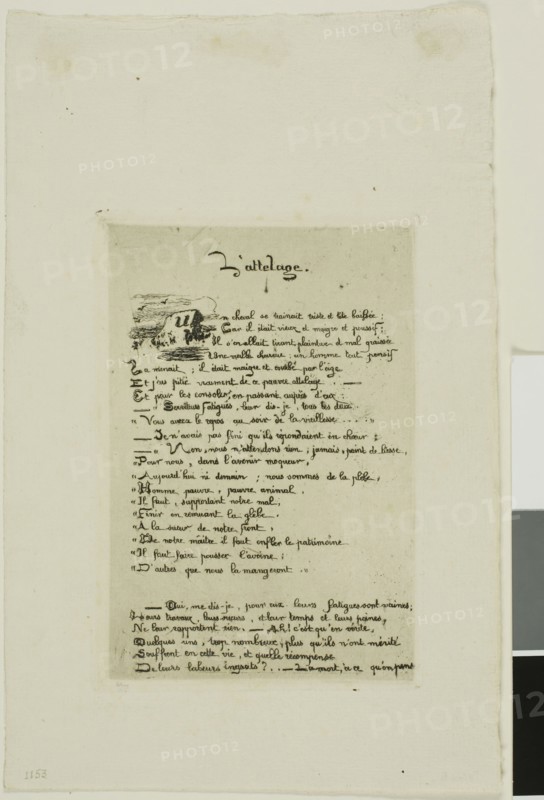 L'attelage.
Un cheval se trainait triste et tête baissée ;
Car il était vieux et maigre et poussif ;
Il s'en allait tirant, plaintive et mal graissée
Une vieille charrue ; un homme tout pensif
La menait ; il était maigre et courbé par l'âge
Et j'eus pitié vraiment de ce pauvre attelage . —
Et pour les consoler, en passant auprès d'eux :
— " Serviteurs fatigués, leur dis-je, tous les deux
" Vous avez le repos au soir de la vieillesse . . . . "
— Je n'avais pas fini qu'ils répondaient en chœur :
— " Non, nous n'attendons rien, jamais, point de liesse,
" Pour nous, dans l'avenir moqueur,
" Aujourd'hui ni demain ; nous sommes de la plèbe,
" Homme pauvre, pauvre animal,
" Il faut, supportant notre mal,
" Finir en remuant la glèbe.
" A la sueur de notre front,
" De notre maître il faut enfler le patrimoine
" Il faut faire pousser l'avoine ;
" D'autres que nous la mangeront . "
— Oui, me dis-je, pour eux leurs fatigues sont vaines ;
Leurs travaux, leurs sueurs, et leur temps et leurs peines,
Ne leur rapportent rien. — Ah ! c'est qu'en vérité,
Quelques uns, trop nombreux, plus qu'ils n'ont mérité
Souffrent en cette vie, et quelle récompense
De leurs labeurs ingrats ? . . — La mort, à ce qu'on pense
1153
PHOTO12
PHOTO12
PHOTO12
PHOTO12
PHOTO12
PHOTO12
PHOTO12
PHOTO12
PHOTO12
PHOTO12
PHOTO12